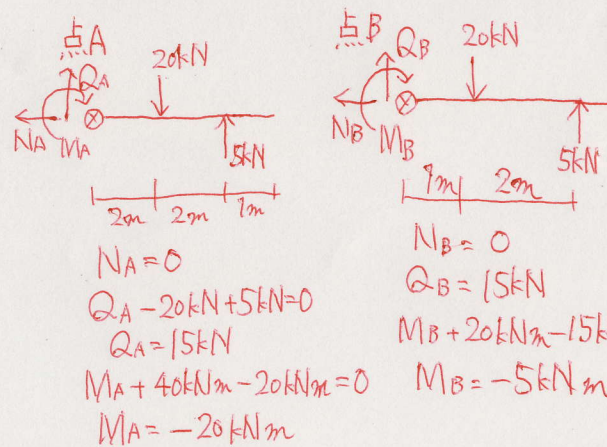 点A
20kN
QA
NA
MA
5kN
2m 2m 1m
NA=0
QA-20kN+5kN=0
QA=15kN
MA+40kNm-20kNm=0
MA=-20kNm
点B
QB
20kN
NB
MB
5kN
1m 2m
NB=0
QB=15kN
MB+20kNm-15k
MB=-5kNm